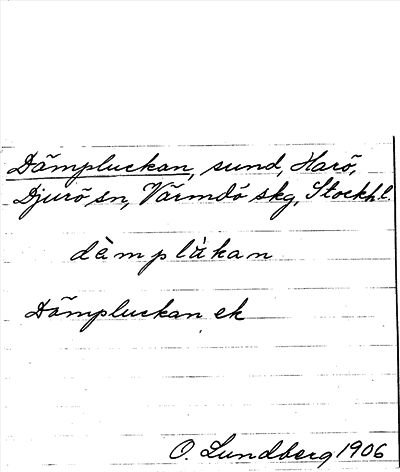 Dämpluckan, sund, Harö,
Djurö sn, Värmdö skg, Stockhl.
dàmplùkan
Dämpluckan ek
O. Lundberg 1906